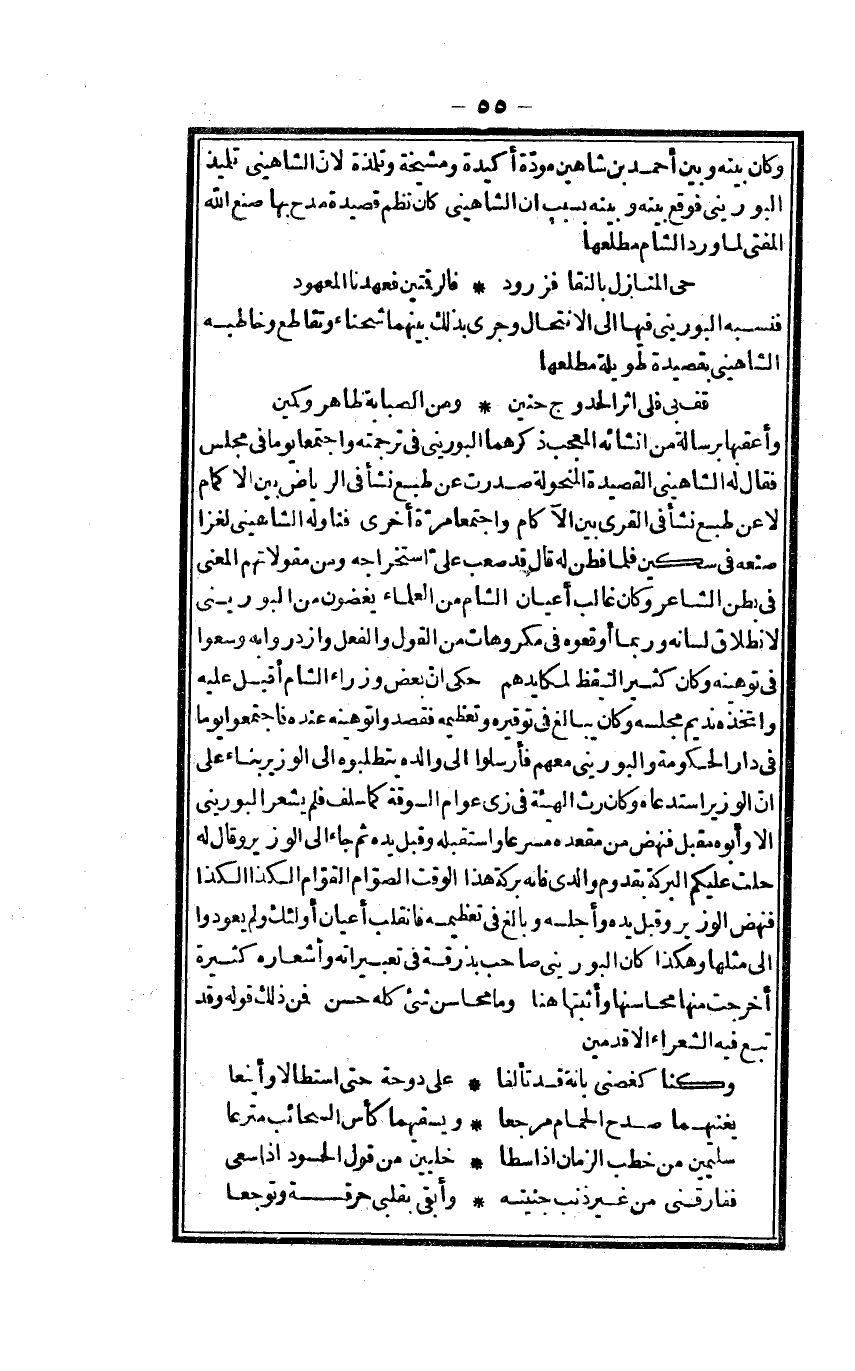 - ٥٥ -
وكان بينه وبين أحمد بن شاهين مودّة أكيدة ومشيخة وتلمذة لانّ الشاهينى تليذ
البورينى فوقع بينه وبينه بسبب ان الشاهينى كان نظم قصيدة مدح بها صنع الله
المفتى لما ورد الشام مطلعها
حى المنازل بالنقا فزرود * فالرقتين فعهدنا المعهود
فنسبه البورينى فيها الى الانتحال وجرى بذلك بينهما شحناء وتقاطع وخاطبه
الشاهينى بقصيدة طويلة مطلعها
قف بى فلى اثر الحدوج حنين * ومن الصبابة ظاهر وكمين
وأعقبها برسالة من انشائه المعجب ذكرهما البورينى فى ترجمته واجتمعا يوما فى مجلس
فقال له الشاهينى القصيدة المنحولة صدرت عن طبع نشأ فى الرياض بين الاكمام
لا عن طبع نشأ فى القرى بين الآكام واجتمعا مرّة أخرى فناوله الشاهينى لغزا
صنعه فى سكين فلما فطن له قال قد صعب علىّ استخراجه ومن مقولاتهم المعنى
فى بطن الشاعر وكان غالب أعيان الشام من العلماء يغضون من البورينى
لانطلاق لسانه وربما أوقعوه فى مكروهات من القول والفعل وازدروا به وسعوا
فى توهينه وكان كثير التيقظ لمكايدهم حكى انّ بعض وزراء الشام أقبل عليه
واتخذه نديم مجلسه وكان يبالغ فى توقيره وتعظيمه فقصدوا توهينه عنده فاجتمعوا يوما
فى دار الحكومة والبورينى معهم فأرسلوا الى والده يتطلبوه الى الوزير بناء على
انّ الوزير استدعاه وكان رث الهيئة فى زى عوام السوقة كما سلف فلم يشعر البورينى
الا وأبوه مقبل فنهض من مقعده مسرعا واستقبله وقبل يده ثم جاء الى الوزير وقال له
حلت عليكم البركة بقدوم والدى فانه بركة هذا الوقت الصوّام القوّام الكذا الكذا
فنهض الوزير وقبل يده وأجلسه وبالغ فى تعظيمه فانقلب أعيان أولئك ولم يعودوا
الى مثلها وهكذا كان البورينى صاحب بذرقة فى تعبيراته وأشعاره كثيرة
أخرجت منها محاسنها وأثبتها هنا وما محاسن شئ كله حسن فمن ذلك قوله وقد
تبع فيه الشعراء الاقدمين
وكنا كغصنى بانة قد تألفا * على دوحة حتى استطالا وأينعا
يغنيهما صدح الحمام مرجعا * ويسقيهما كأس السحائب مترعا
سليمين من خطب الزمان اذا سطا * خليين من قول الحسود اذا سعى
ففارقنى من غير ذنب جنيته * وأبقى بقلبى حرقة وتوجعا